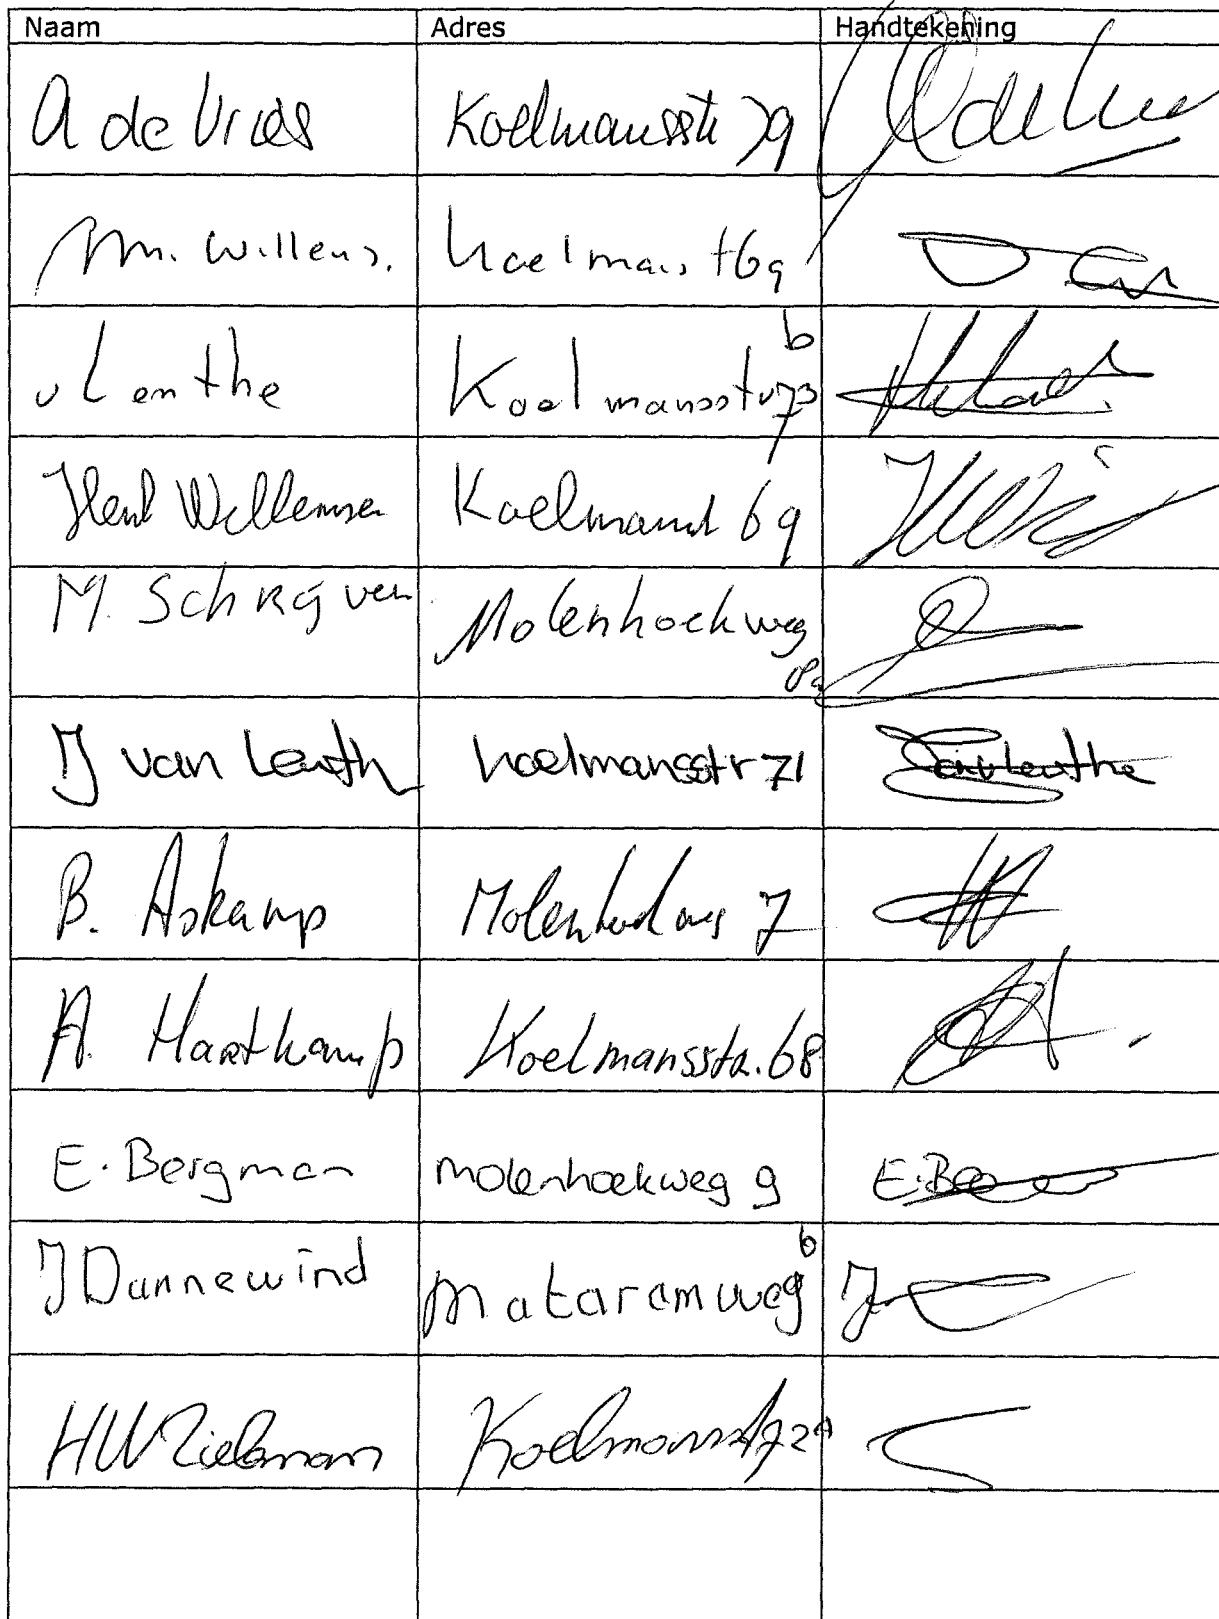 Naam Adres Handtekening
A de Vries Koelmansstr 79
M. Willems. Koelmans t 69
v Lenthe Koelmansstr 73 b
Henk Willemsen Koelmanst 69
M. Schrijver Molenhoekweg
J van Lenth Koelmansstr 71
B. Askamp Molenhoekweg 7
A. Hartkamp Koelmansstr. 68
E. Bergman Molenhoekweg 9
J Dannewind Mataramweg 6
HW Zielman Koelmansstr 72A